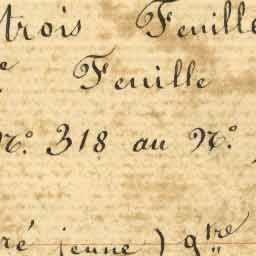 trois Feuille
e Feuille
N.º 318 au N.º
ré jeune ) 9tre